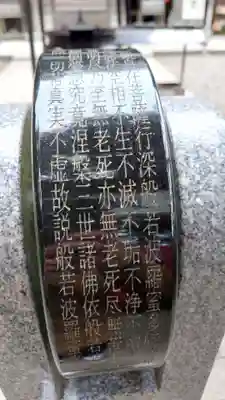 在菩薩行深般若波羅蜜多
空相不生不滅不垢不浄
乃至無老死亦無老死尽無
想究竟涅槃三世諸佛依般若
一切苦真実不虚故説般若波羅蜜